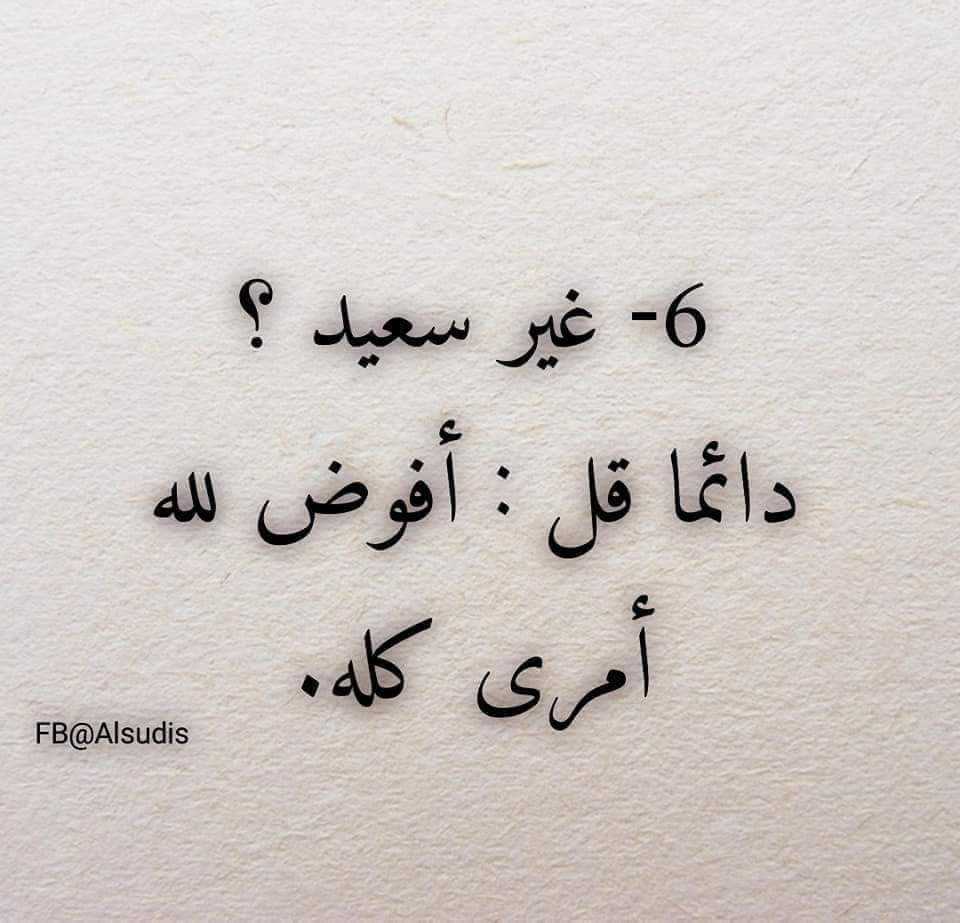 6- غير سعيد ؟
دائما قل : أفوض لله
أمرى كله.
FB@Alsudis